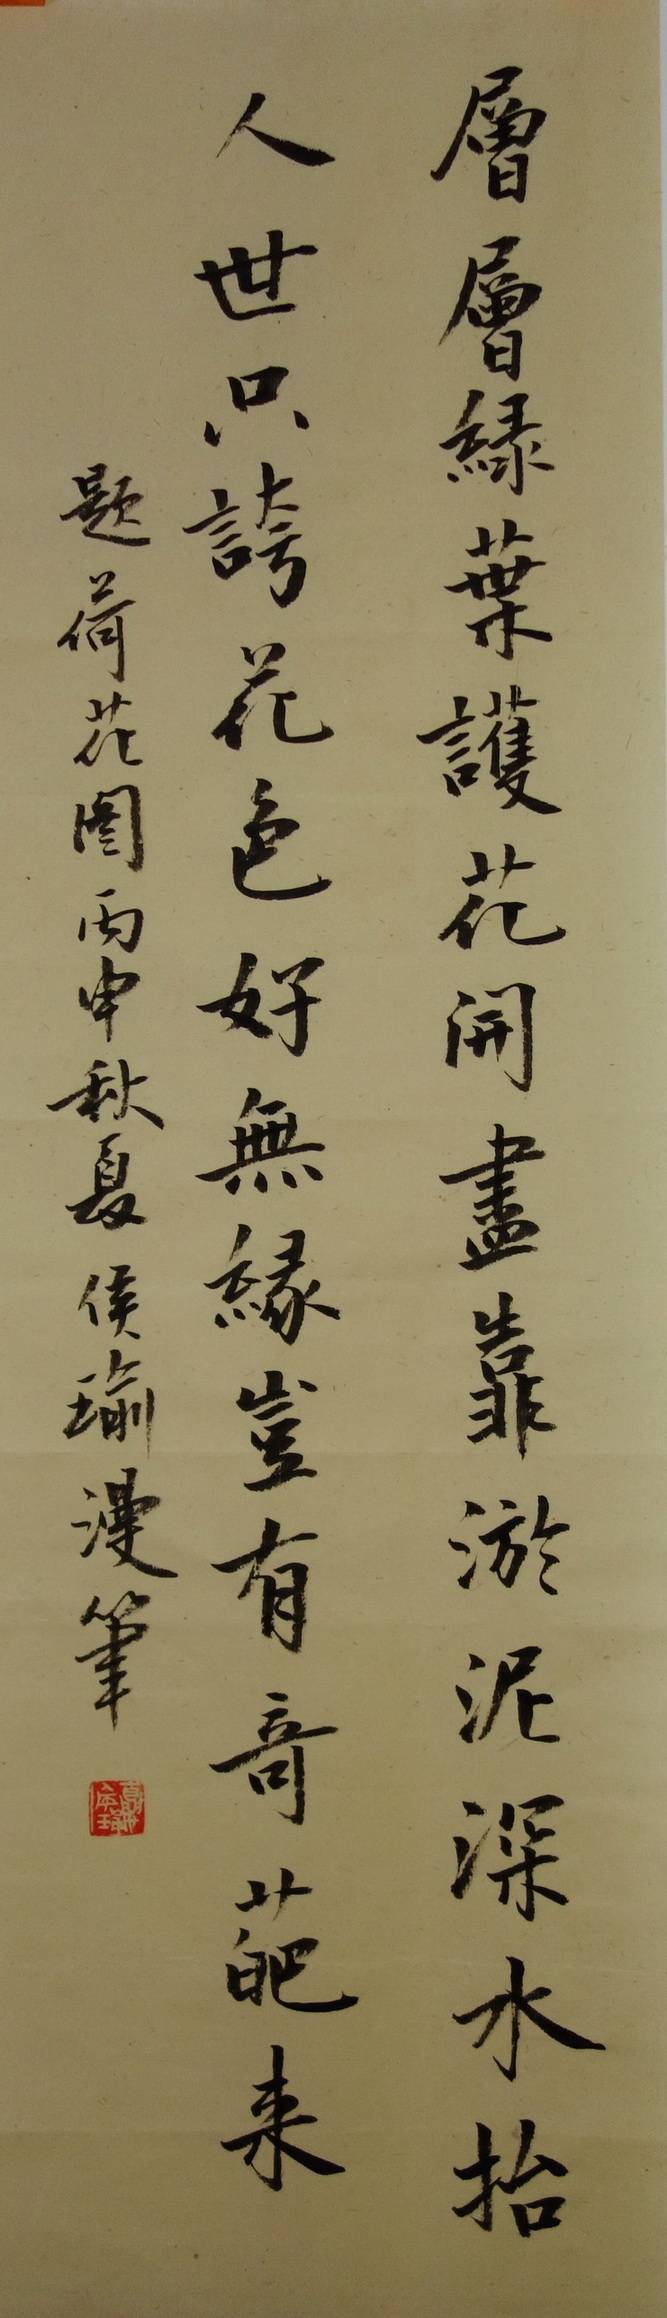 層層緑葉護花開盡靠淤泥深水抬
人世只誇花色好無緣豈有奇葩来
题荷花图丙申秋夏侯瑜漫筆